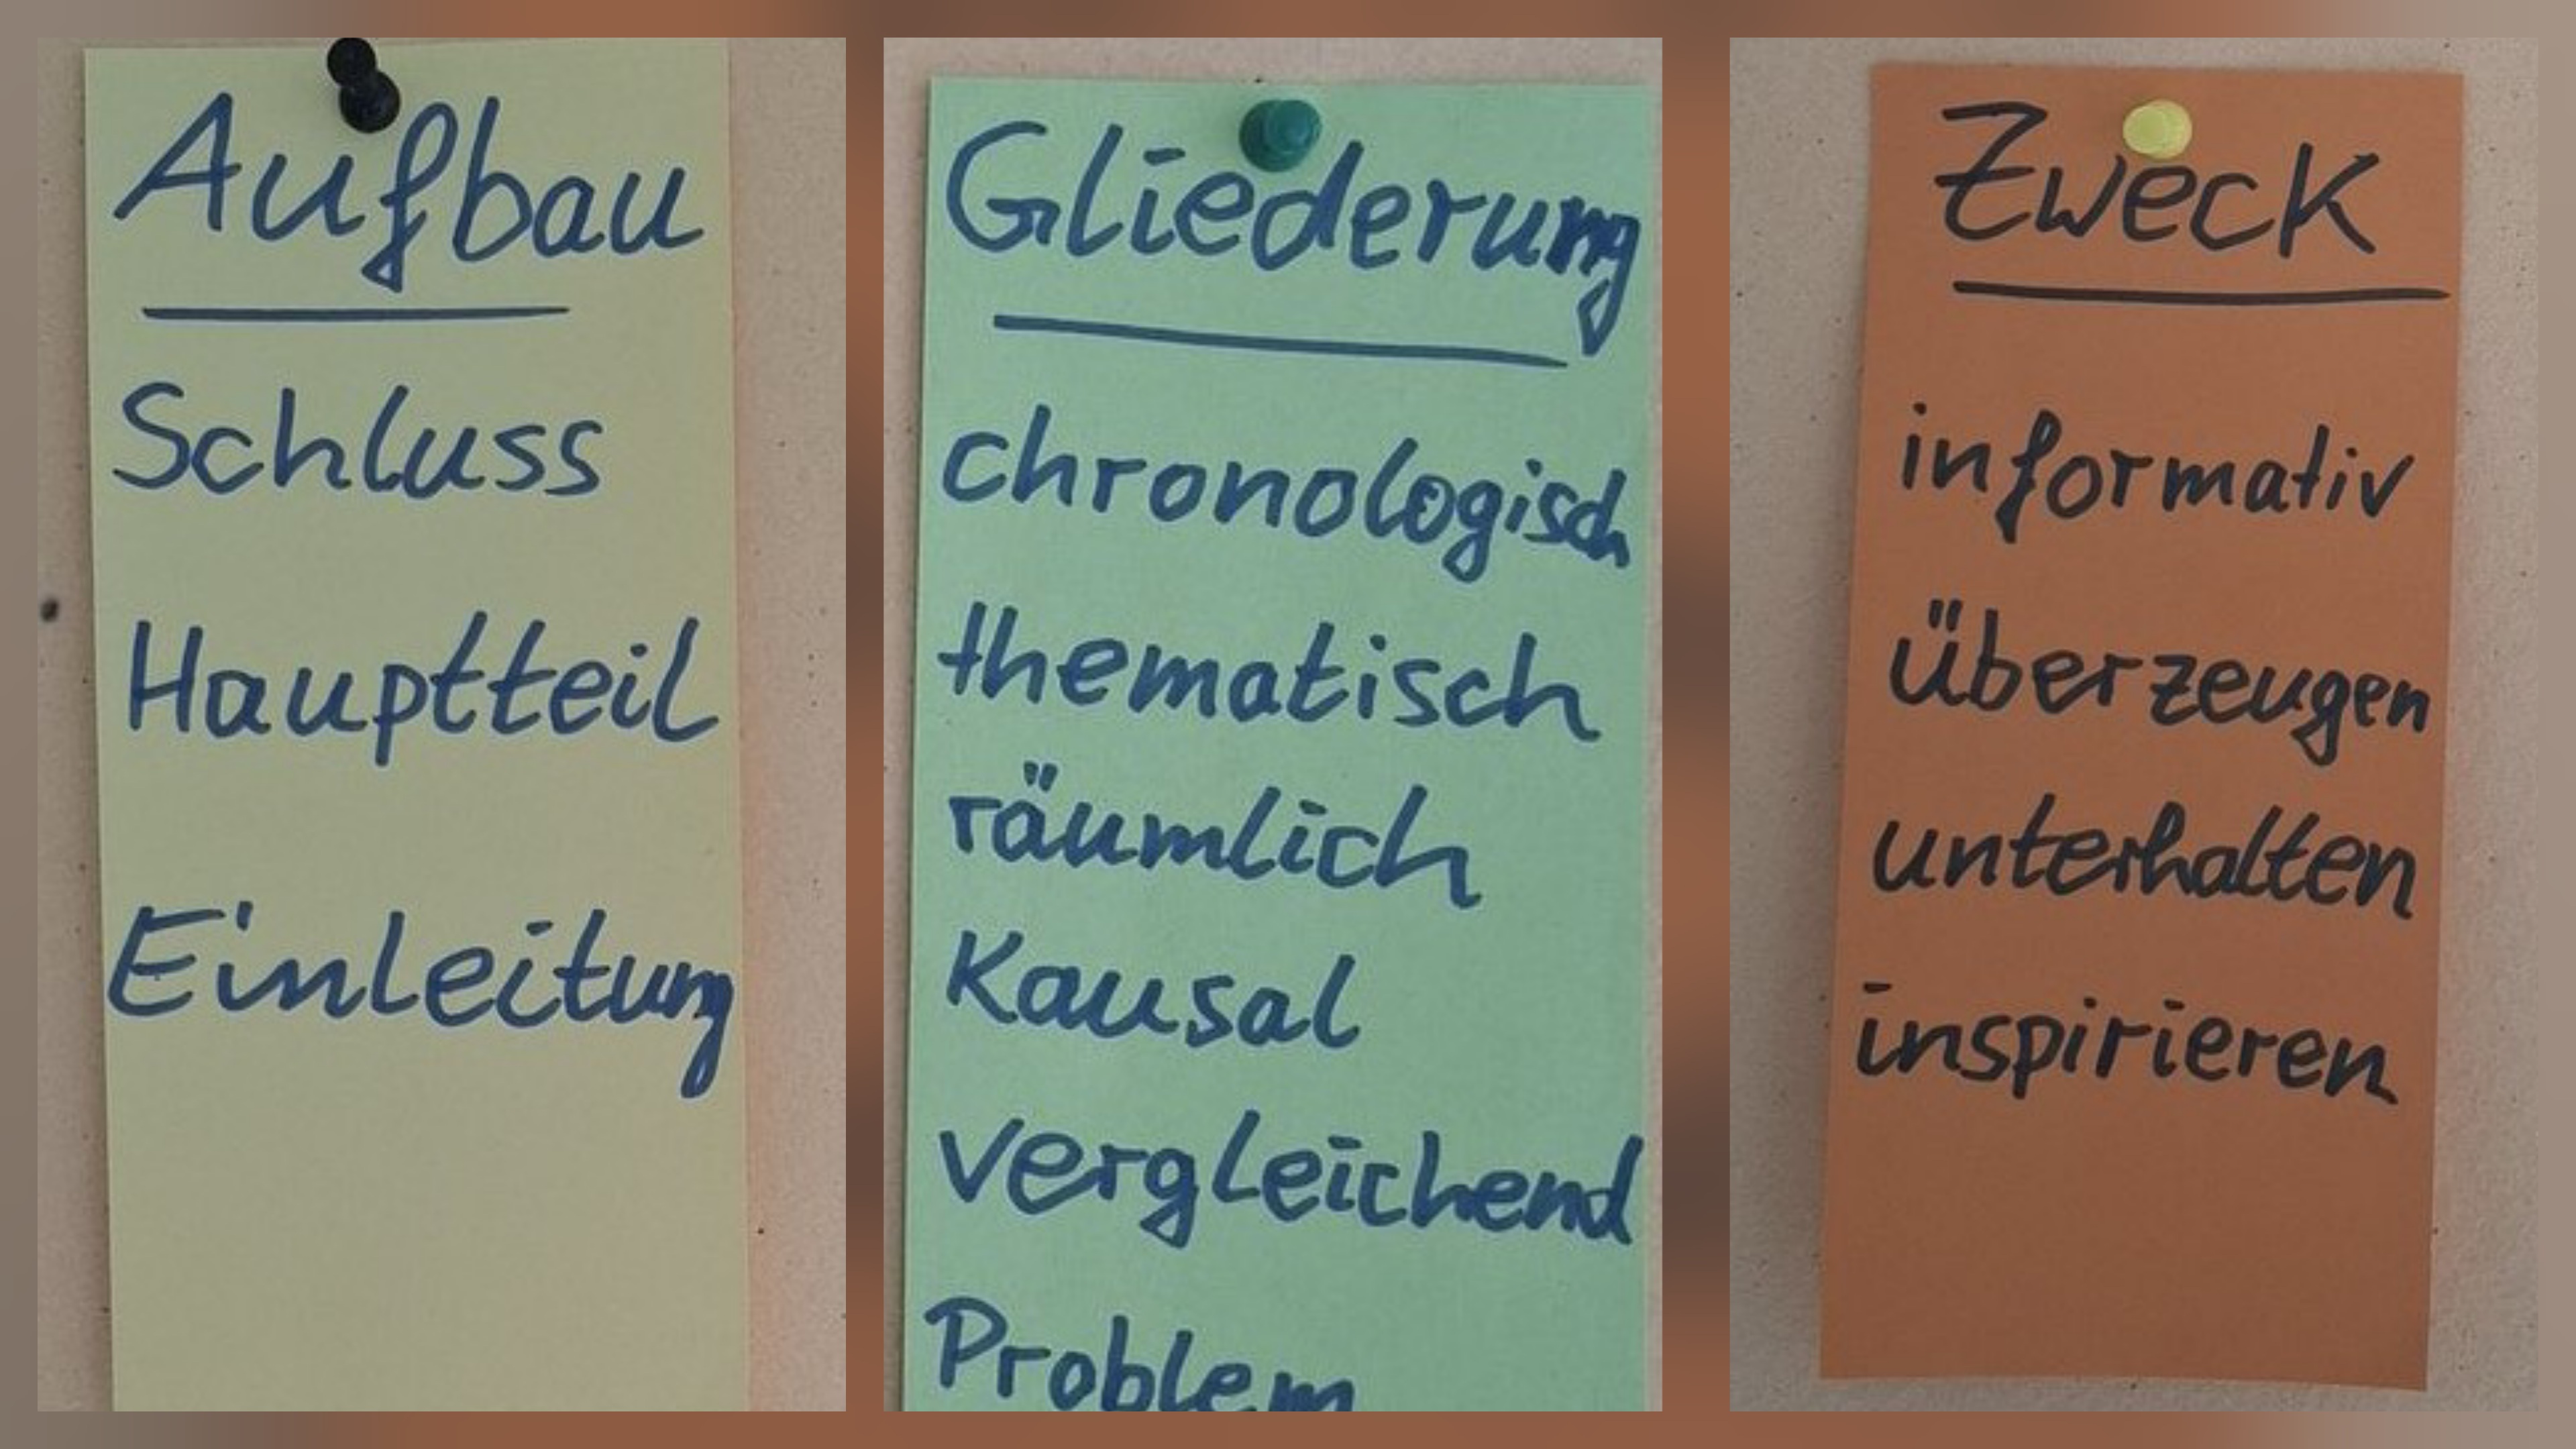 Aufbau
Schluss
Hauptteil
Einleitung
Gliederung
chronologisch
thematisch
räumlich
Kausal
vergleichend
Problem
Zweck
informativ
überzeugen
unterhalten
inspirieren